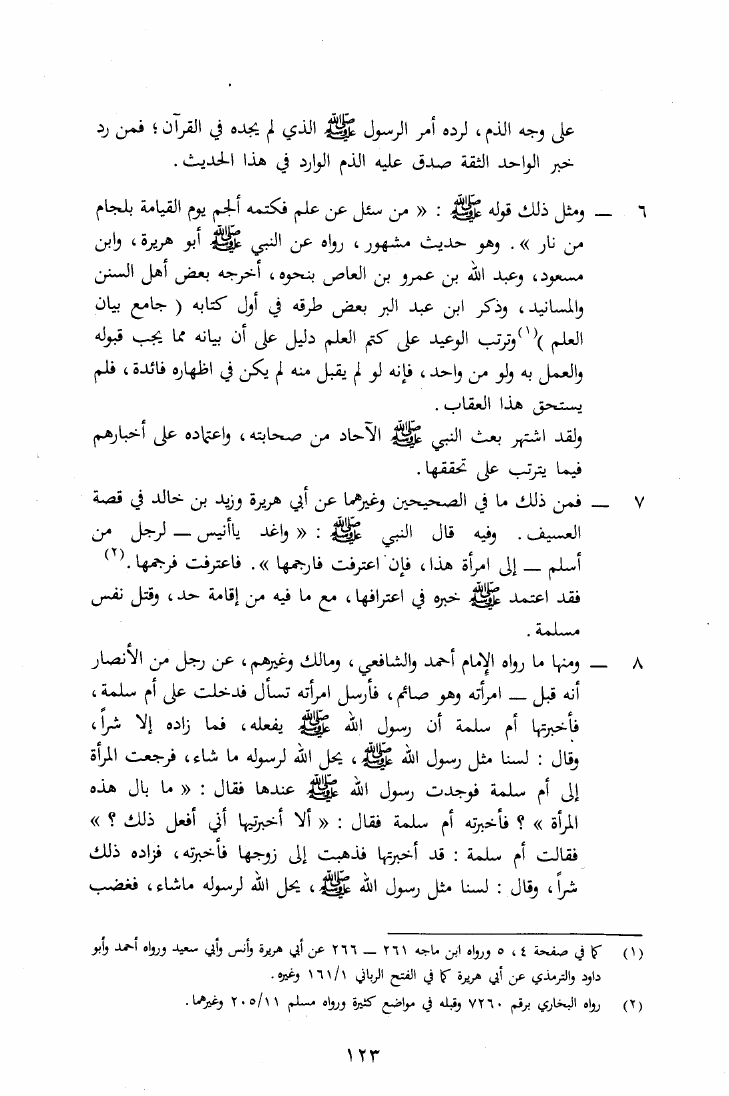 على وجه الذم، لرده أمر الرسول ﷺ الذي لم يجده في القرآن؛ فمن رد
خبر الواحد الثقة صدق عليه الذم الوارد في هذا الحديث.
٦ — ومثل ذلك قوله ﷺ : « من سئل عن علم فكتمه ألجم يوم القيامة بلجام
من نار ». وهو حديث مشهور، رواه عن النبي ﷺ أبو هريرة، وابن
مسعود، وعبد الله بن عمرو بن العاص بنحوه، أخرجه بعض أهل السنن
والمسانيد، وذكر ابن عبد البر بعض طرقه في أول كتابه ( جامع بيان
العلم )(١) وترتب الوعيد على كتم العلم دليل على أن بيانه مما يجب قبوله
والعمل به ولو من واحد، فإنه لو لم يقبل منه لم يكن في اظهاره فائدة، فلم
يستحق هذا العقاب.
ولقد اشتهر بعث النبي ﷺ الآحاد من صحابته، واعتماده على أخبارهم
فيما يترتب على تحققها.
٧ — فمن ذلك ما في الصحيحين وغيرهما عن أبي هريرة وزيد بن خالد في قصة
العسيف. وفيه قال النبي ﷺ : « واغد ياأنيس — لرجل من
أسلم — إلى امرأة هذا، فإن اعترفت فارجمها ». فاعترفت فرجمها.(٢)
فقد اعتمد ﷺ خبره في اعترافها، مع ما فيه من إقامة حد، وقتل نفس
مسلمة.
٨ — ومنها ما رواه الإمام أحمد والشافعي، ومالك وغيرهم، عن رجل من الأنصار
أنه قبل — امرأته وهو صائم، فأرسل امرأته تسأل فدخلت على أم سلمة،
فأخبرتها أم سلمة أن رسول الله ﷺ يفعله، فما زاده إلا شراً،
وقال : لسنا مثل رسول الله ﷺ، يحل الله لرسوله ما شاء، فرجعت المرأة
إلى أم سلمة فوجدت رسول الله ﷺ عندها فقال : « ما بال هذه
المرأة » ؟ فأخبرته أم سلمة فقال : « ألا أخبرتيها أني أفعل ذلك ؟ »
فقالت أم سلمة : قد أخبرتها فذهبت إلى زوجها فأخبرته، فزاده ذلك
شراً، وقال : لسنا مثل رسول الله ﷺ، يحل الله لرسوله ماشاء، فغضب
(١) كما في صفحة ٤، ٥ ورواه ابن ماجه ٢٦١ — ٢٦٦ عن أبي هريرة وأنس وأبي سعيد ورواه أحمد وأبو
داود والترمذي عن أبي هريرة كما في الفتح الرباني ١٦١/١ وغيره.
(٢) رواه البخاري برقم ٧٢٦٠ وقبله في مواضع كثيرة ورواه مسلم ٢٠٥/١١ وغيرهما.
١٢٣